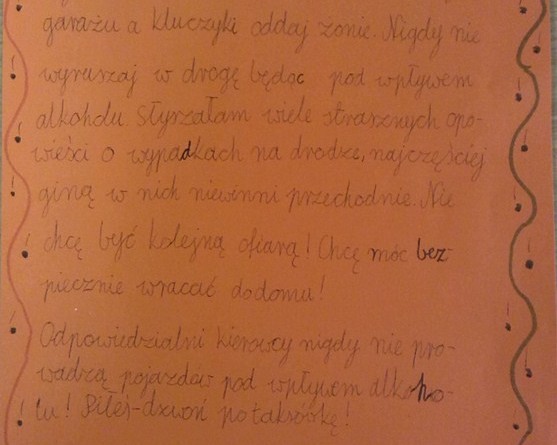 garażu a kluczyki oddaj żonie. Nigdy nie
wyruszaj w drogę będąc pod wpływem
alkoholu. Słyszałam wiele strasznych opo-
wieści o wypadkach na drodze, najczęściej
giną w nich niewinni przechodnie. Nie
chcę być kolejną ofiarą! Chcę móc bez-
piecznie wracać do domu!
Odpowiedzialni kierowcy nigdy nie pro-
wadzą pojazdów pod wpływem alkoho-
lu! Piłeś-dzwoń po taksówkę!